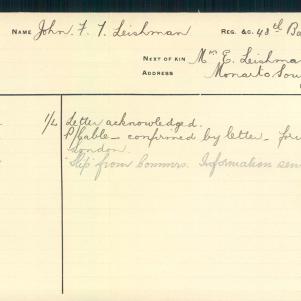 NAME John. F. T. Leishman REG. &C. 48th Ba
NEXT OF KIN Mrs E. Leishma
ADDRESS Monarto Sou
1/4 Letter acknowledged.
P/Cable - confirmed by letter - fr
London.
"Slip" from Commrs. Information sen